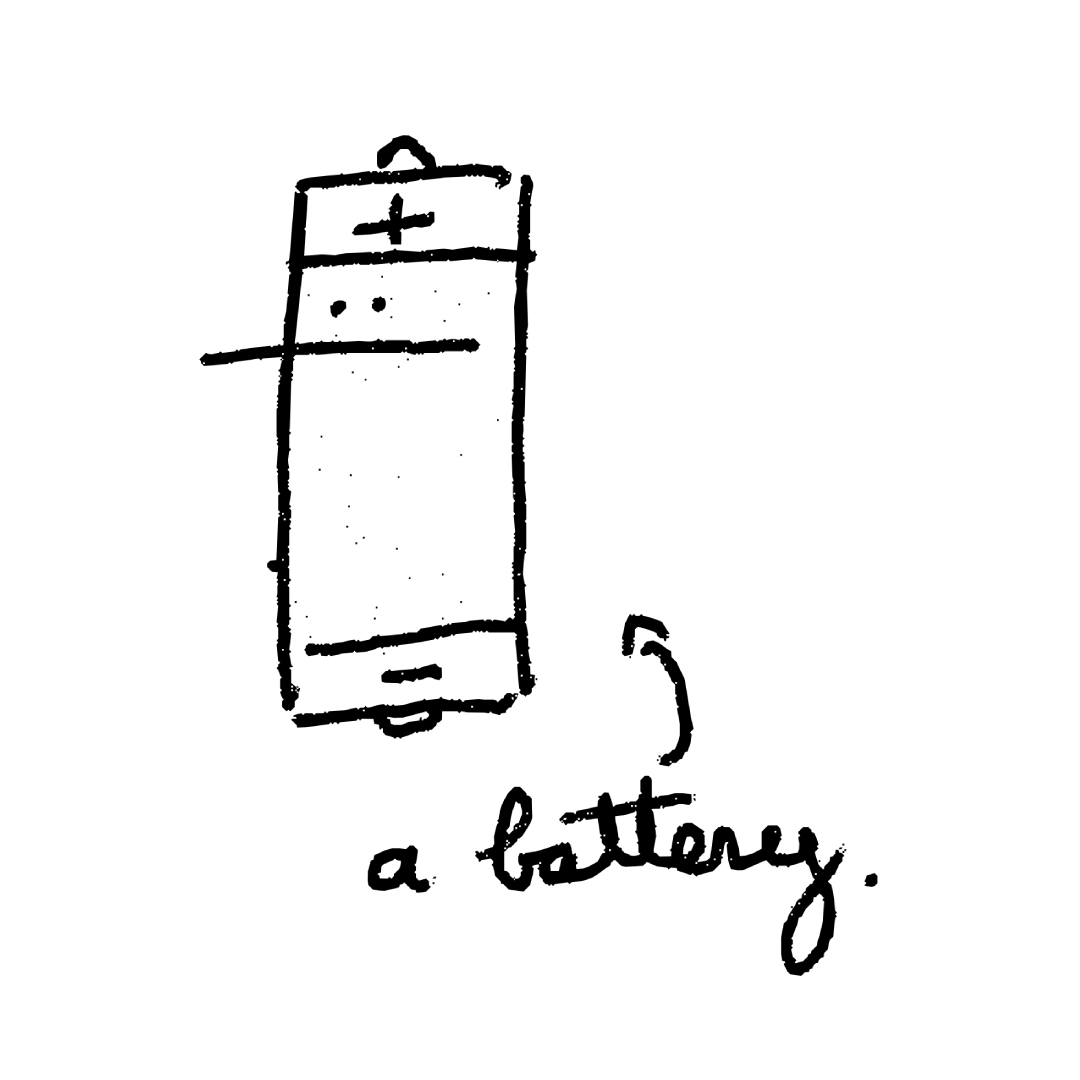 +
-
a battery.